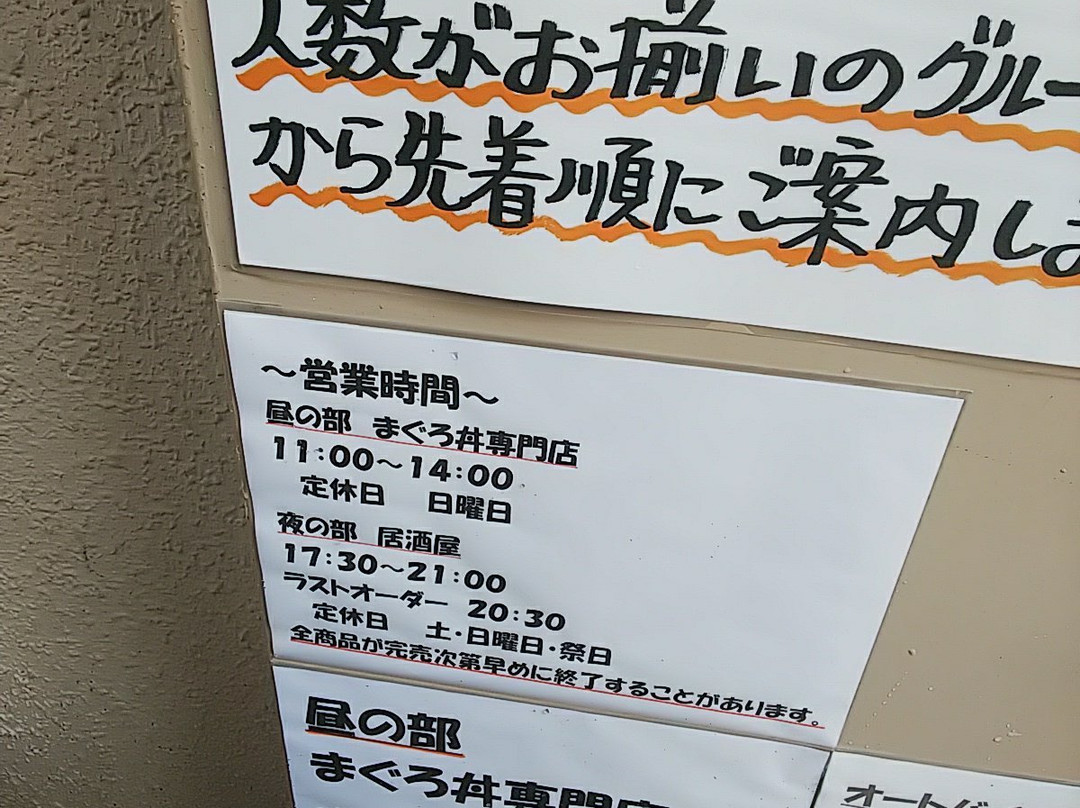 人数がお揃いのグルー
から先着順にご案内しま
～営業時間～
昼の部 まぐろ丼専門店
11:00～14:00
定休日 日曜日
夜の部 居酒屋
17:30～21:00
ラストオーダー 20:30
定休日 土・日曜日・祭日
全商品が完売次第早めに終了することがあります。
昼の部
まぐろ丼専門店
オートバ